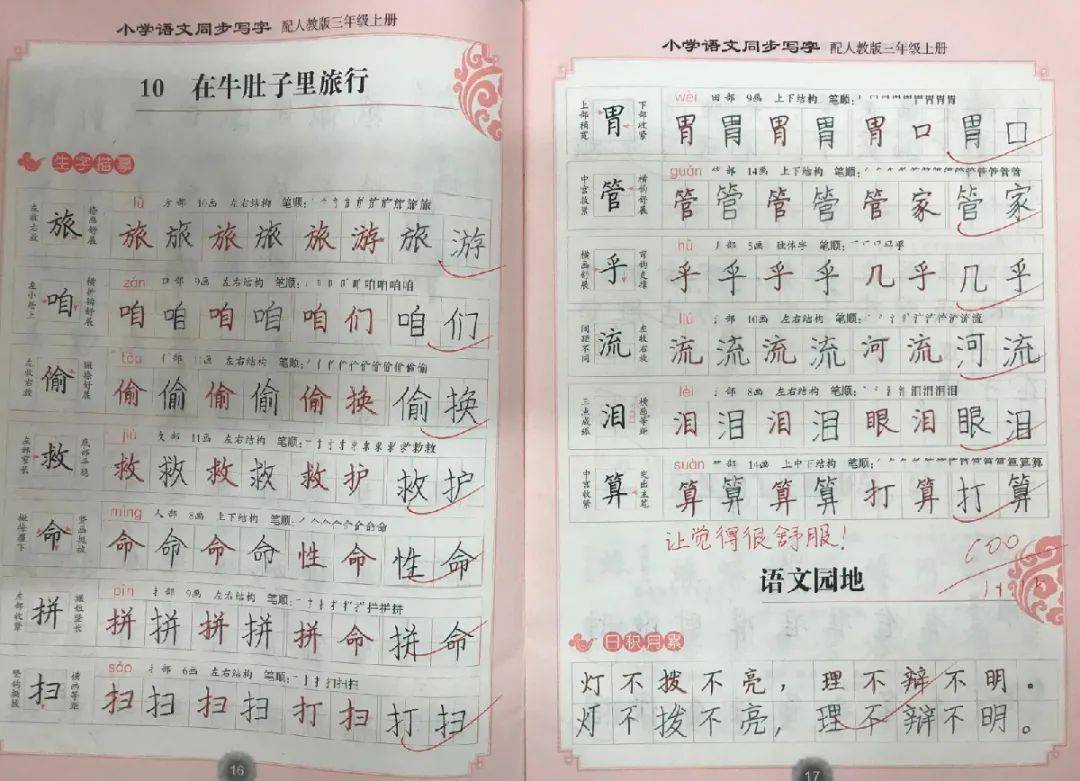 小学语文同步写字 配人教版三年级上册
10 在牛肚子里旅行
生字描摹
lǚ 10画 左右结构 笔顺:
左收右放 旅 捺画舒展
旅 旅 旅 旅 旅 游 旅 游
zán 口部 9画 左右结构 笔顺:
左小居上 咱
咱 咱 咱 咱 咱 们 咱 们
tōu 11画 左右结构 笔顺:
左收右放 偷
偷 偷 偷 偷 偷 换 偷 换
jiù 11画 左右结构 笔顺:
左部窄长 救
救 救 救 救 救 护 救 护
mìng 人部 8画 上下结构 笔顺:
撇捺覆下 命
命 命 命 命 性 命 性 命
pīn 9画 左右结构 笔顺:
左部收紧 拼 撇短竖长
拼 拼 拼 拼 拼 命 拼 命
sǎo 6画 左右结构 笔顺:
竖钩挺拔 扫 横画等距
扫 扫 扫 扫 打 扫 打 扫
16
小学语文同步写字 配人教版三年级上册
wèi 田部 9画 上下结构 笔顺:
上部稍宽 胃 下部收紧
胃 胃 胃 胃 胃 口 胃 口
guǎn 14画 上下结构 笔顺:
中宫收紧 管 横钩舒展
管 管 管 管 管 家 管 家
hū 5画 独体字 笔顺:
横画舒展 乎 弯钩支撑
乎 乎 乎 乎 几 乎 几 乎
liú 10画 左右结构 笔顺:
间距不同 流 左收右放
流 流 流 流 河 流 河 流
lèi 8画 左右结构 笔顺:
三点成弧 泪 横画等距
泪 泪 泪 泪 眼 泪 眼 泪
suàn 14画 上中下结构 笔顺:
中宫收紧 算 突出主笔
算 算 算 算 打 算 打 算
让觉得很舒服!
100
语文园地
日积月累
灯不拨不亮,理不辩不明。
灯不拨不亮,理不辩不明。
17